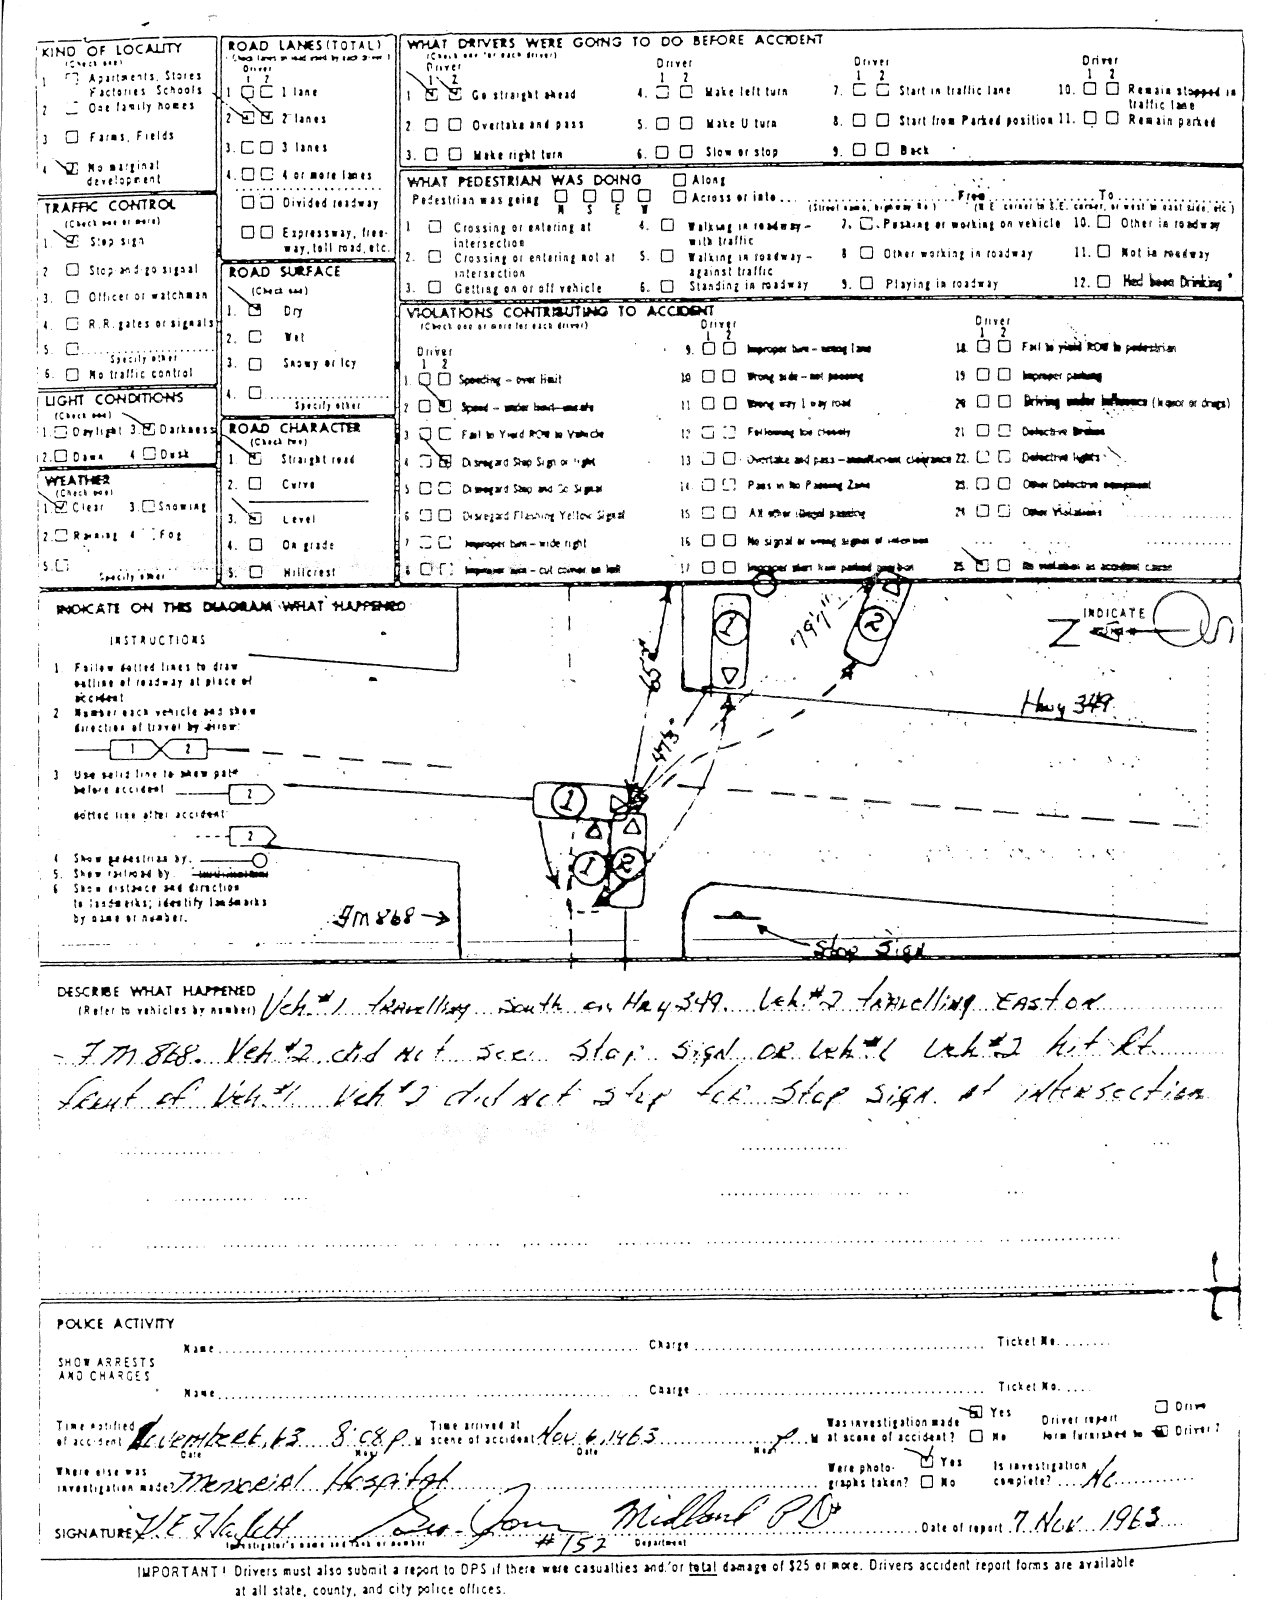 KIND OF LOCALITY
(Check one)
1 Apartments, Stores
Factories, Schools
2 One family homes
3 Farms, Fields
4 No marginal
development
TRAFFIC CONTROL
(Check one or more)
1. Stop sign
2 Stop and go signal
3. Officer or watchman
4. R.R. gates or signals
5.
Specify other
6. No traffic control
LIGHT CONDITIONS
(Check one)
1. Daylight 3. Darkness
2. Dawn 4 Dusk
WEATHER
(Check one)
1. Clear 3. Snowing
2. Raining 4 Fog
5.
Specify other
ROAD LANES (TOTAL)
(Check lanes on road used by each driver)
Driver
1 2
1 1 lane
2 2 lanes
3. 3 lanes
4. 4 or more lanes
Divided roadway
Expressway, free-
way, toll road, etc.
ROAD SURFACE
(Check one)
1. Dry
2. Wet
3. Snowy or Icy
4.
Specify other
ROAD CHARACTER
(Check two)
1. Straight road
2. Curve
3. Level
4. On grade
5. Hillcrest
WHAT DRIVERS WERE GOING TO DO BEFORE ACCIDENT
(Check one for each driver)
Driver
1 2
1 Go straight ahead
2 Overtake and pass
3. Make right turn
Driver
1 2
4. Make left turn
5. Make U turn
6. Slow or stop
Driver
1 2
7. Start in traffic lane
8. Start from Parked position
9. Back
Driver
1 2
10. Remain stopped in
traffic lane
11. Remain parked
WHAT PEDESTRIAN WAS DOING
Pedestrian was going
N S E W
Along
Across or into From To
(Street name, highway No.) (N.E. corner to S.E. corner, or west to east side, etc.)
1 Crossing or entering at
intersection
2. Crossing or entering not at
intersection
3. Getting on or off vehicle
4. Walking in roadway -
with traffic
5. Walking in roadway -
against traffic
6. Standing in roadway
7. Pushing or working on vehicle
8 Other working in roadway
9. Playing in roadway
10. Other in roadway
11. Not in roadway
12. Had been Drinking
VIOLATIONS CONTRIBUTING TO ACCIDENT
(Check one or more for each driver)
Driver
1 2
1. Speeding - over limit
2 Speed - under limit - unsafe
3 Fail to Yield ROW to Vehicle
4 Disregard Stop Sign or light
5 Disregard Stop and Go Signal
6 Disregard Flashing Yellow Signal
7 Improper turn - wide right
8 Improper turn - cut corner on left
Driver
1 2
9. Improper turn - wrong lane
10 Wrong side - not passing
11 Wrong way 1 way road
12 Following too closely
13 Overtake and pass - insufficient clearance
14 Pass in No Passing Zone
15 All other illegal passing
16 No signal or wrong signal of intention
17 Improper start from parked position
Driver
1 2
18 Fail to yield ROW to pedestrian
19 Improper parking
20 Driving under influence (liquor or drugs)
21 Defective Brakes
22. Defective lights
23. Other Defective equipment
24 Other Violations
25 No violation as accident cause
INDICATE ON THIS DIAGRAM WHAT HAPPENED
INSTRUCTIONS
1 Follow dotted lines to draw
outline of roadway at place of
accident
2 Number each vehicle and show
direction of travel by arrow:
1 2
3 Use solid line to show path
before accident 2
dotted line after accident
2
4 Show pedestrian by:
5. Show railroad by
6 Show distance and direction
to landmarks; identify landmarks
by name or number.
INDICATE
N
1
2
79'7"
65'
47'3"
Hwy 349
1
1
2
FM 868
Stop Sign
DESCRIBE WHAT HAPPENED Veh. #1 travelling South on Hwy 349. Veh. #2 travelling East on
(Refer to vehicles by number)
FM 868. Veh #2 did not see stop sign or Veh #1 Veh #2 hit Rt
front of Veh #1 Veh #2 did not stop for stop sign at intersection
POLICE ACTIVITY
SHOW ARRESTS
AND CHARGES
Name Charge Ticket No.
Name Charge Ticket No.
Time notified
of accident November 6, 63 8:08 p M
Date Hour
Time arrived at
scene of accident Nov 6, 1963 p M
Date Hour
Was investigation made
at scene of accident? Yes No
Driver report
form furnished to Driver 2
Where else was
investigation made Memorial Hospital
Were photo-
graphs taken? Yes No
Is investigation
complete? No
SIGNATURE #152 Midland PD
Investigator's name and rank or number Department
Date of report 7 Nov 1963
IMPORTANT! Drivers must also submit a report to DPS if there were casualties and/or total damage of $25 or more. Drivers accident report forms are available
at all state, county, and city police offices.